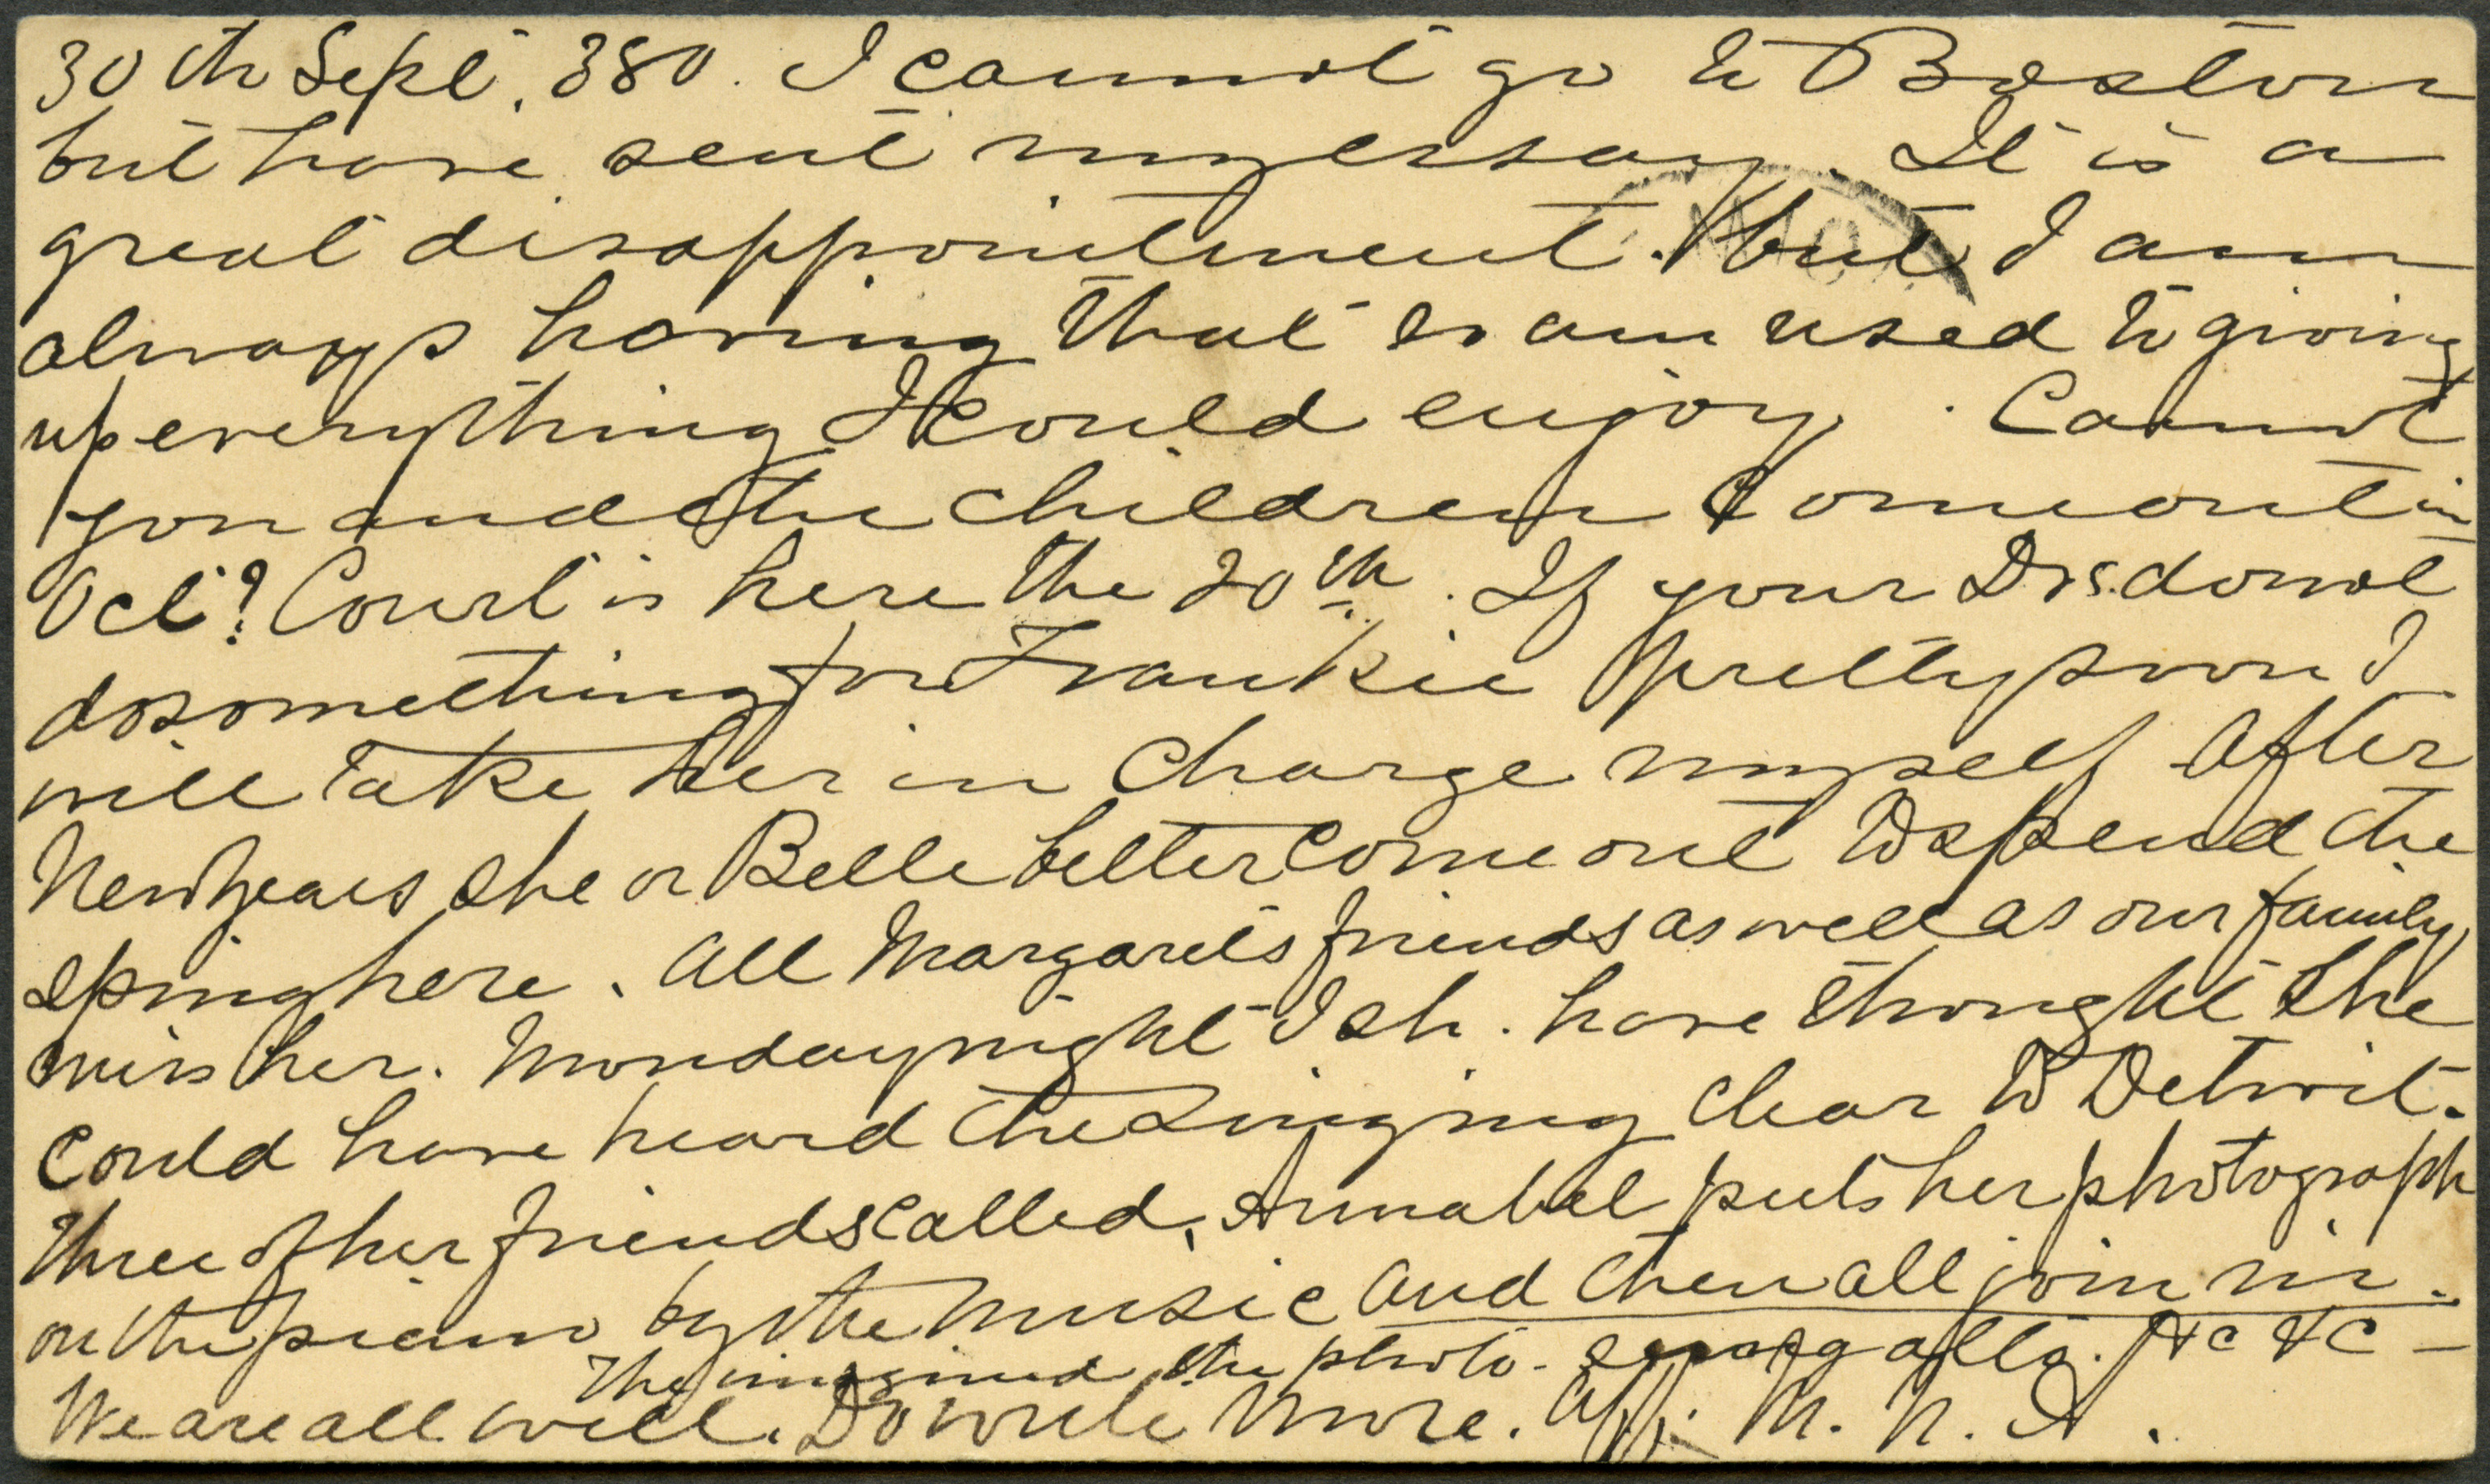 30th Sept. 380. I cannot go to Boston
but have sent my essay. It is a
great disappointment. but I am
always having that so am used to giving
up everything I could enjoy. Cannot
you and the children come out in
Oct? Court is here the 20th. If your Drs. do not
do something for Frankie pretty soon I
will take her in charge myself After
New Years she or Belle better come out to spend the
spring here. All Margaret's friends as well as our family
miss her. Monday night I sh. have thought she
could have heard the singing clear to Detroit.
Three of her friends called, Annabel puts her photograph
on the piano by the music and then all join in.
They imagined the photo. sang alto. &c &c —
We are all well. Do write more. Aff. M. N. A.